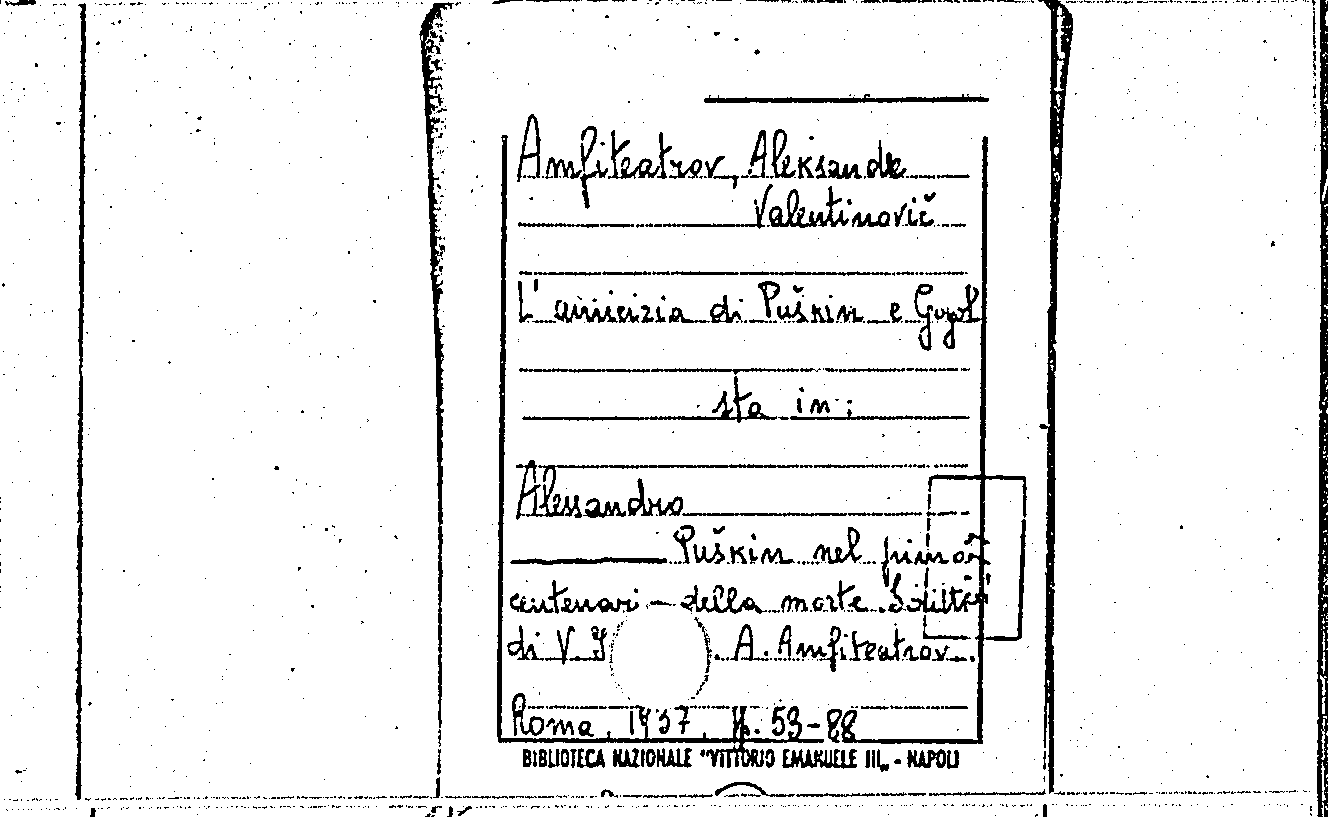 Amfiteatrov, Aleksandr
Valentinovič
L'amicizia di Puškin e Gogol'
sta in:
Alessandro
Puškin nel primo
centenari- della morte. Scritti
di V. A. Amfiteatrov.
Roma, 1937, pp. 53-88
BIBLIOTECA NAZIONALE "VITTORIO EMANUELE III„ - NAPOLI